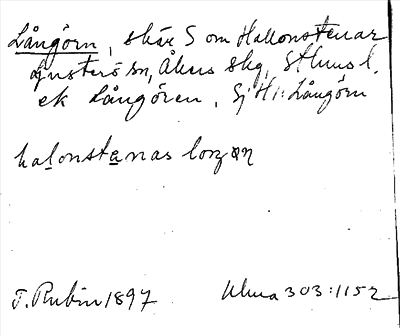 Långörn, skär S om Hallonstenar
Ljusterö sn, Åkers skg, Sthms l.
ek Långören, Sj Hi: Långörn
halonstenas lorgøn
T. Rubin 1897
Ulma 303:1152